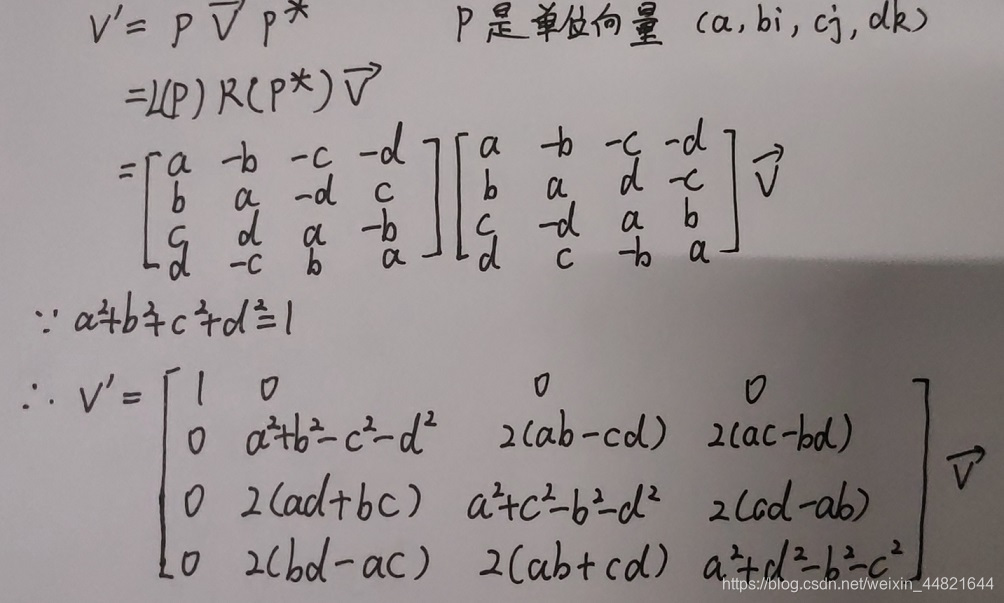 V' = P V⃗ P*    P是单位向量 (a, bi, cj, dk)
= L(P) R(P*) V⃗
= [ a -b -c -d ] [ a -b -c -d ] V⃗
b a -d c    b a d -c
c d a -b    c -d a b
d -c b a    d c -b a
∵ a²+b²+c²+d²=1
∴ V' = [ 1 0 0 0 ] V⃗
0 a²+b²-c²-d² 2(ab-cd) 2(ac-bd)
0 2(ad+bc) a²+c²-b²-d² 2(cd-ab)
0 2(bd-ac) 2(ab+cd) a²+d²-b²-c²
https://blog.csdn.net/weixin_44821644